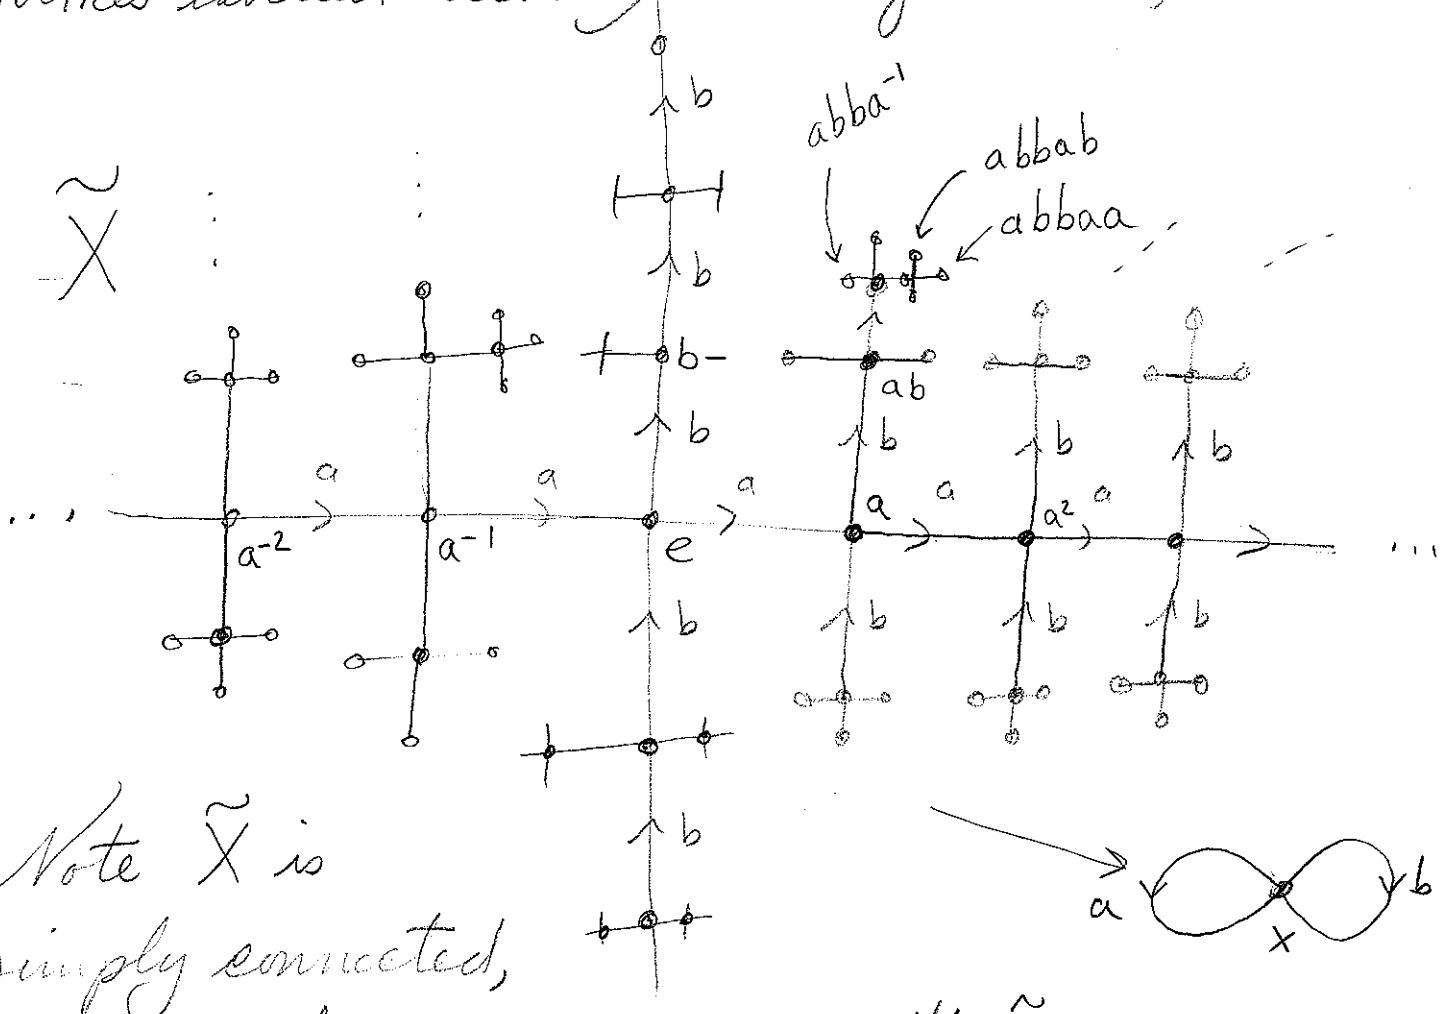 b
abba⁻¹
abbab
X̃
abbaa
b
b –
ab
b
b
b
b
a
a
a
a
a
a
a⁻²
a⁻¹
e
a²
b
b
b
b
b
Note X̃ is
simply connected,
a
b
x